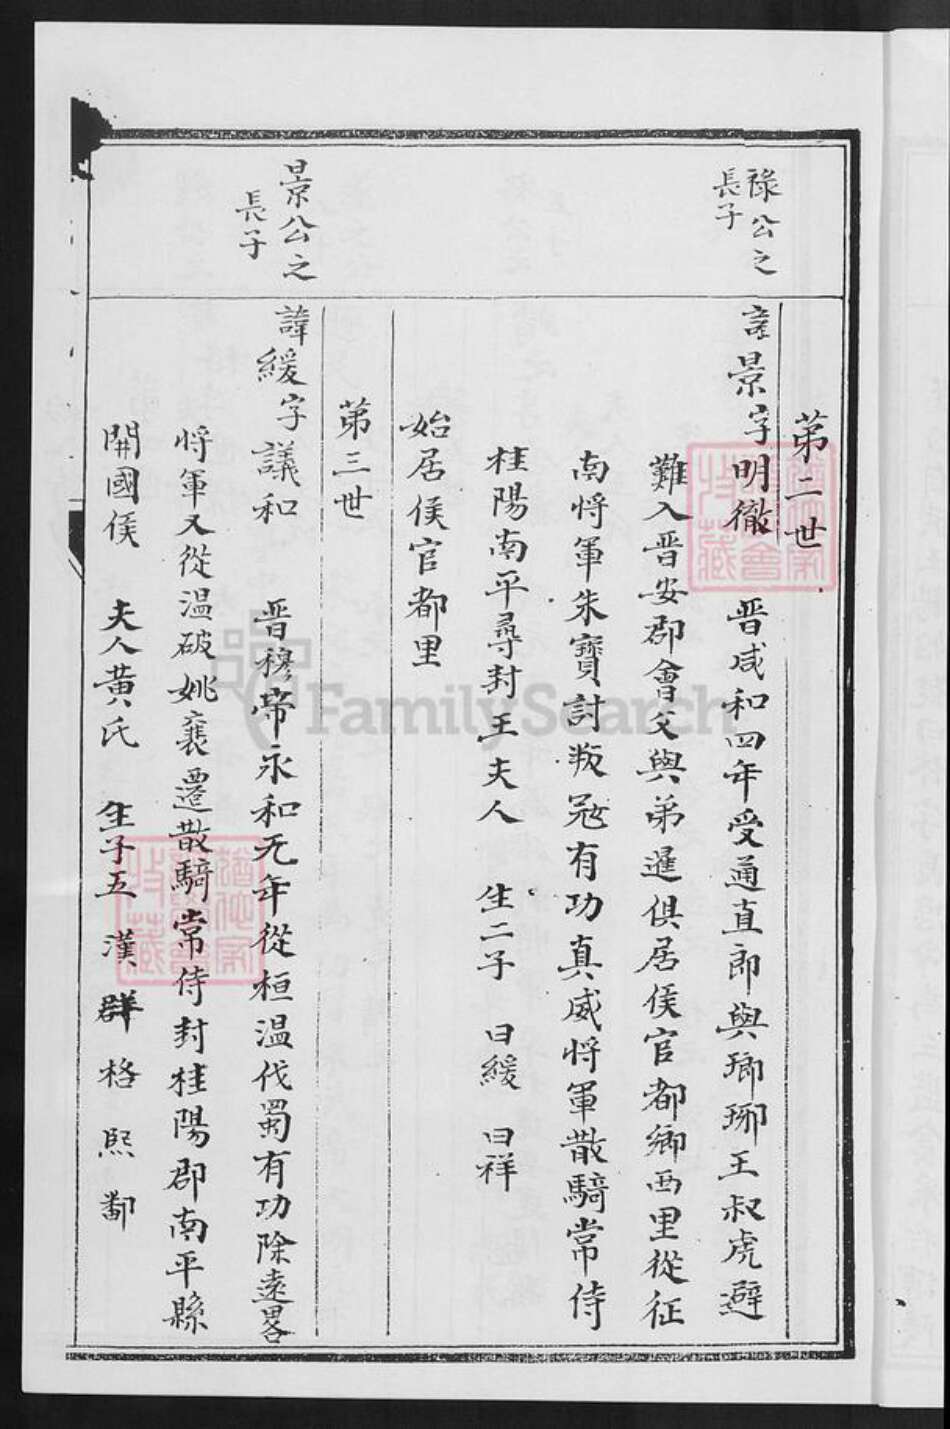 第二世
祿公之
長子
諱景字明徹 晋咸和四年受通直郎與瑯琊王叔虎避
難入晋安郡會父與弟暹俱居侯官都鄉西里從征
南将軍朱寶討叛冦有功真威将軍散騎常侍
桂陽南平尋封 王夫人 生二子 曰緩 曰祥
始居侯官都里
第三世
景公之
長子
諱緩字議和 晋穆帝永和元年從桓温伐蜀有功除遠畧
将軍又從温破姚襄遷散騎常侍封桂陽郡南平縣
開國侯 夫人黄氏 生子五 漢 群 格 熙 鄱
FamilySearch